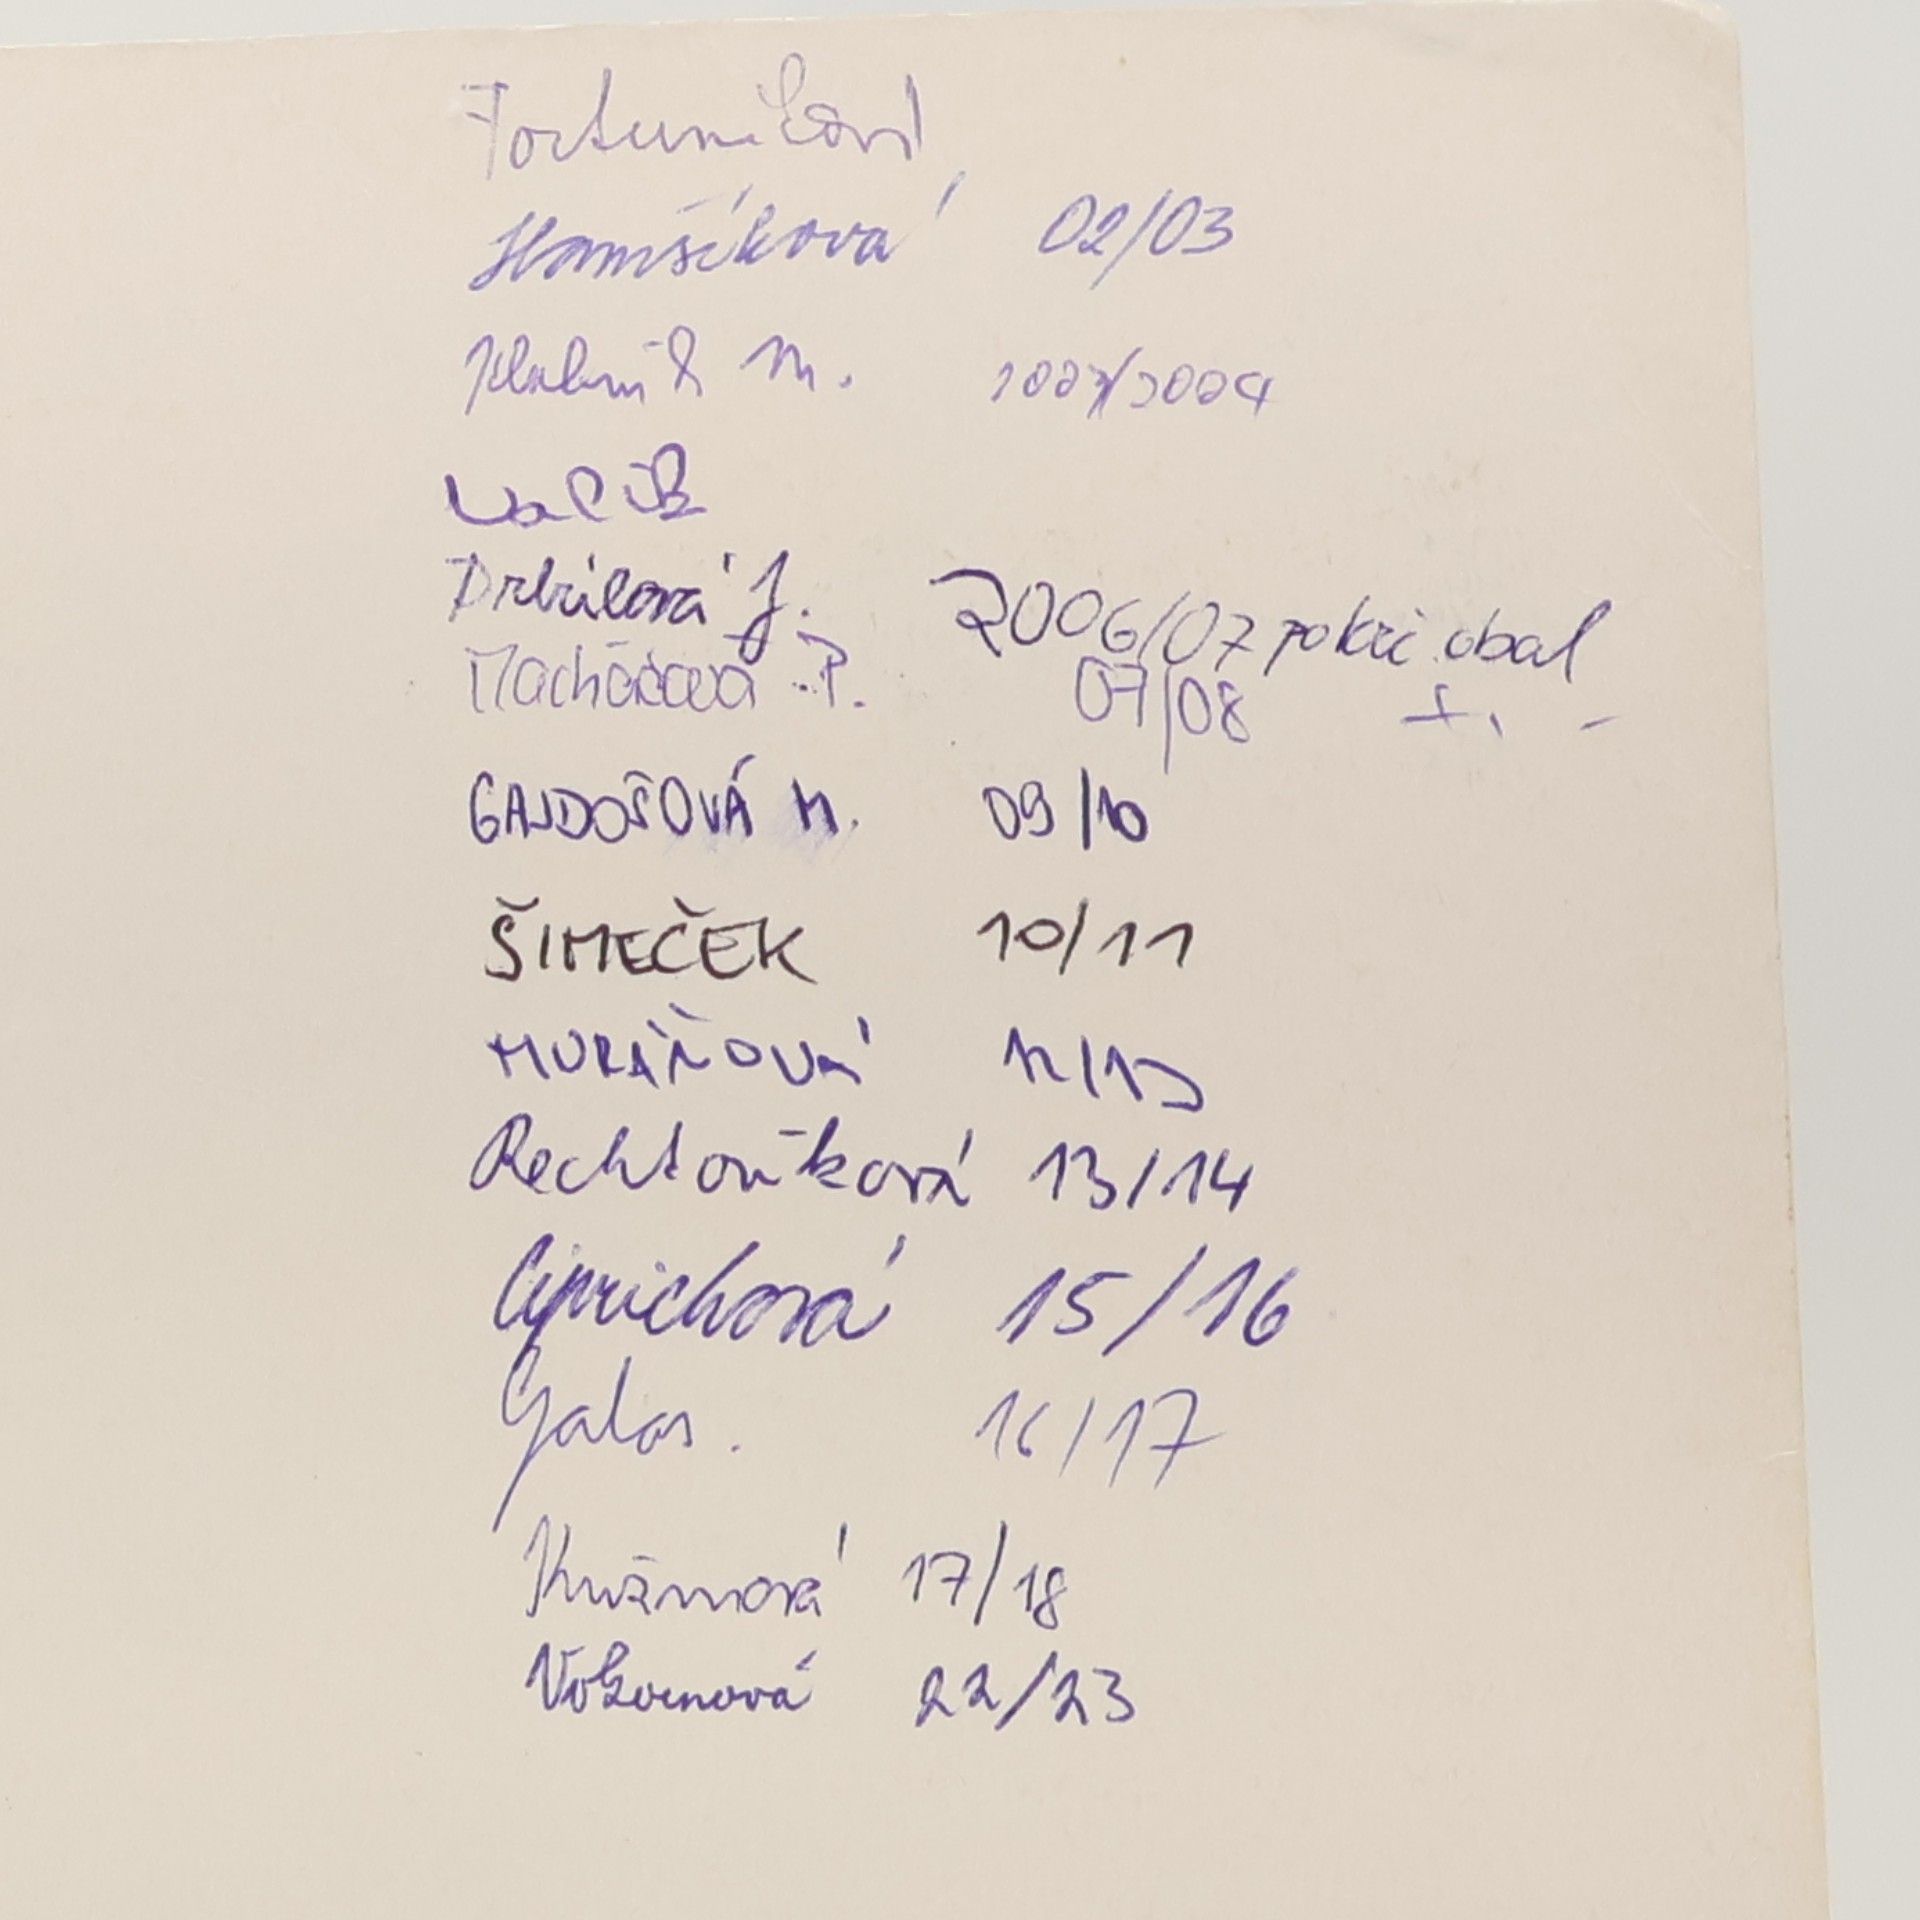 Fortuníková
Hamšíková 02/03
Klabník M. 2003/2004
Vacík
Drlíková J. 2006/07 pokr. obal
Macháčová P. 07/08
GAJDOŠOVÁ M. 09/10
ŠIMEČEK 10/11
MURÁŇOVÁ 12/13
Rechtoríková 13/14
Ciprichová 15/16
Galas. 16/17
Kružmová 17/18
Vokounová 22/23